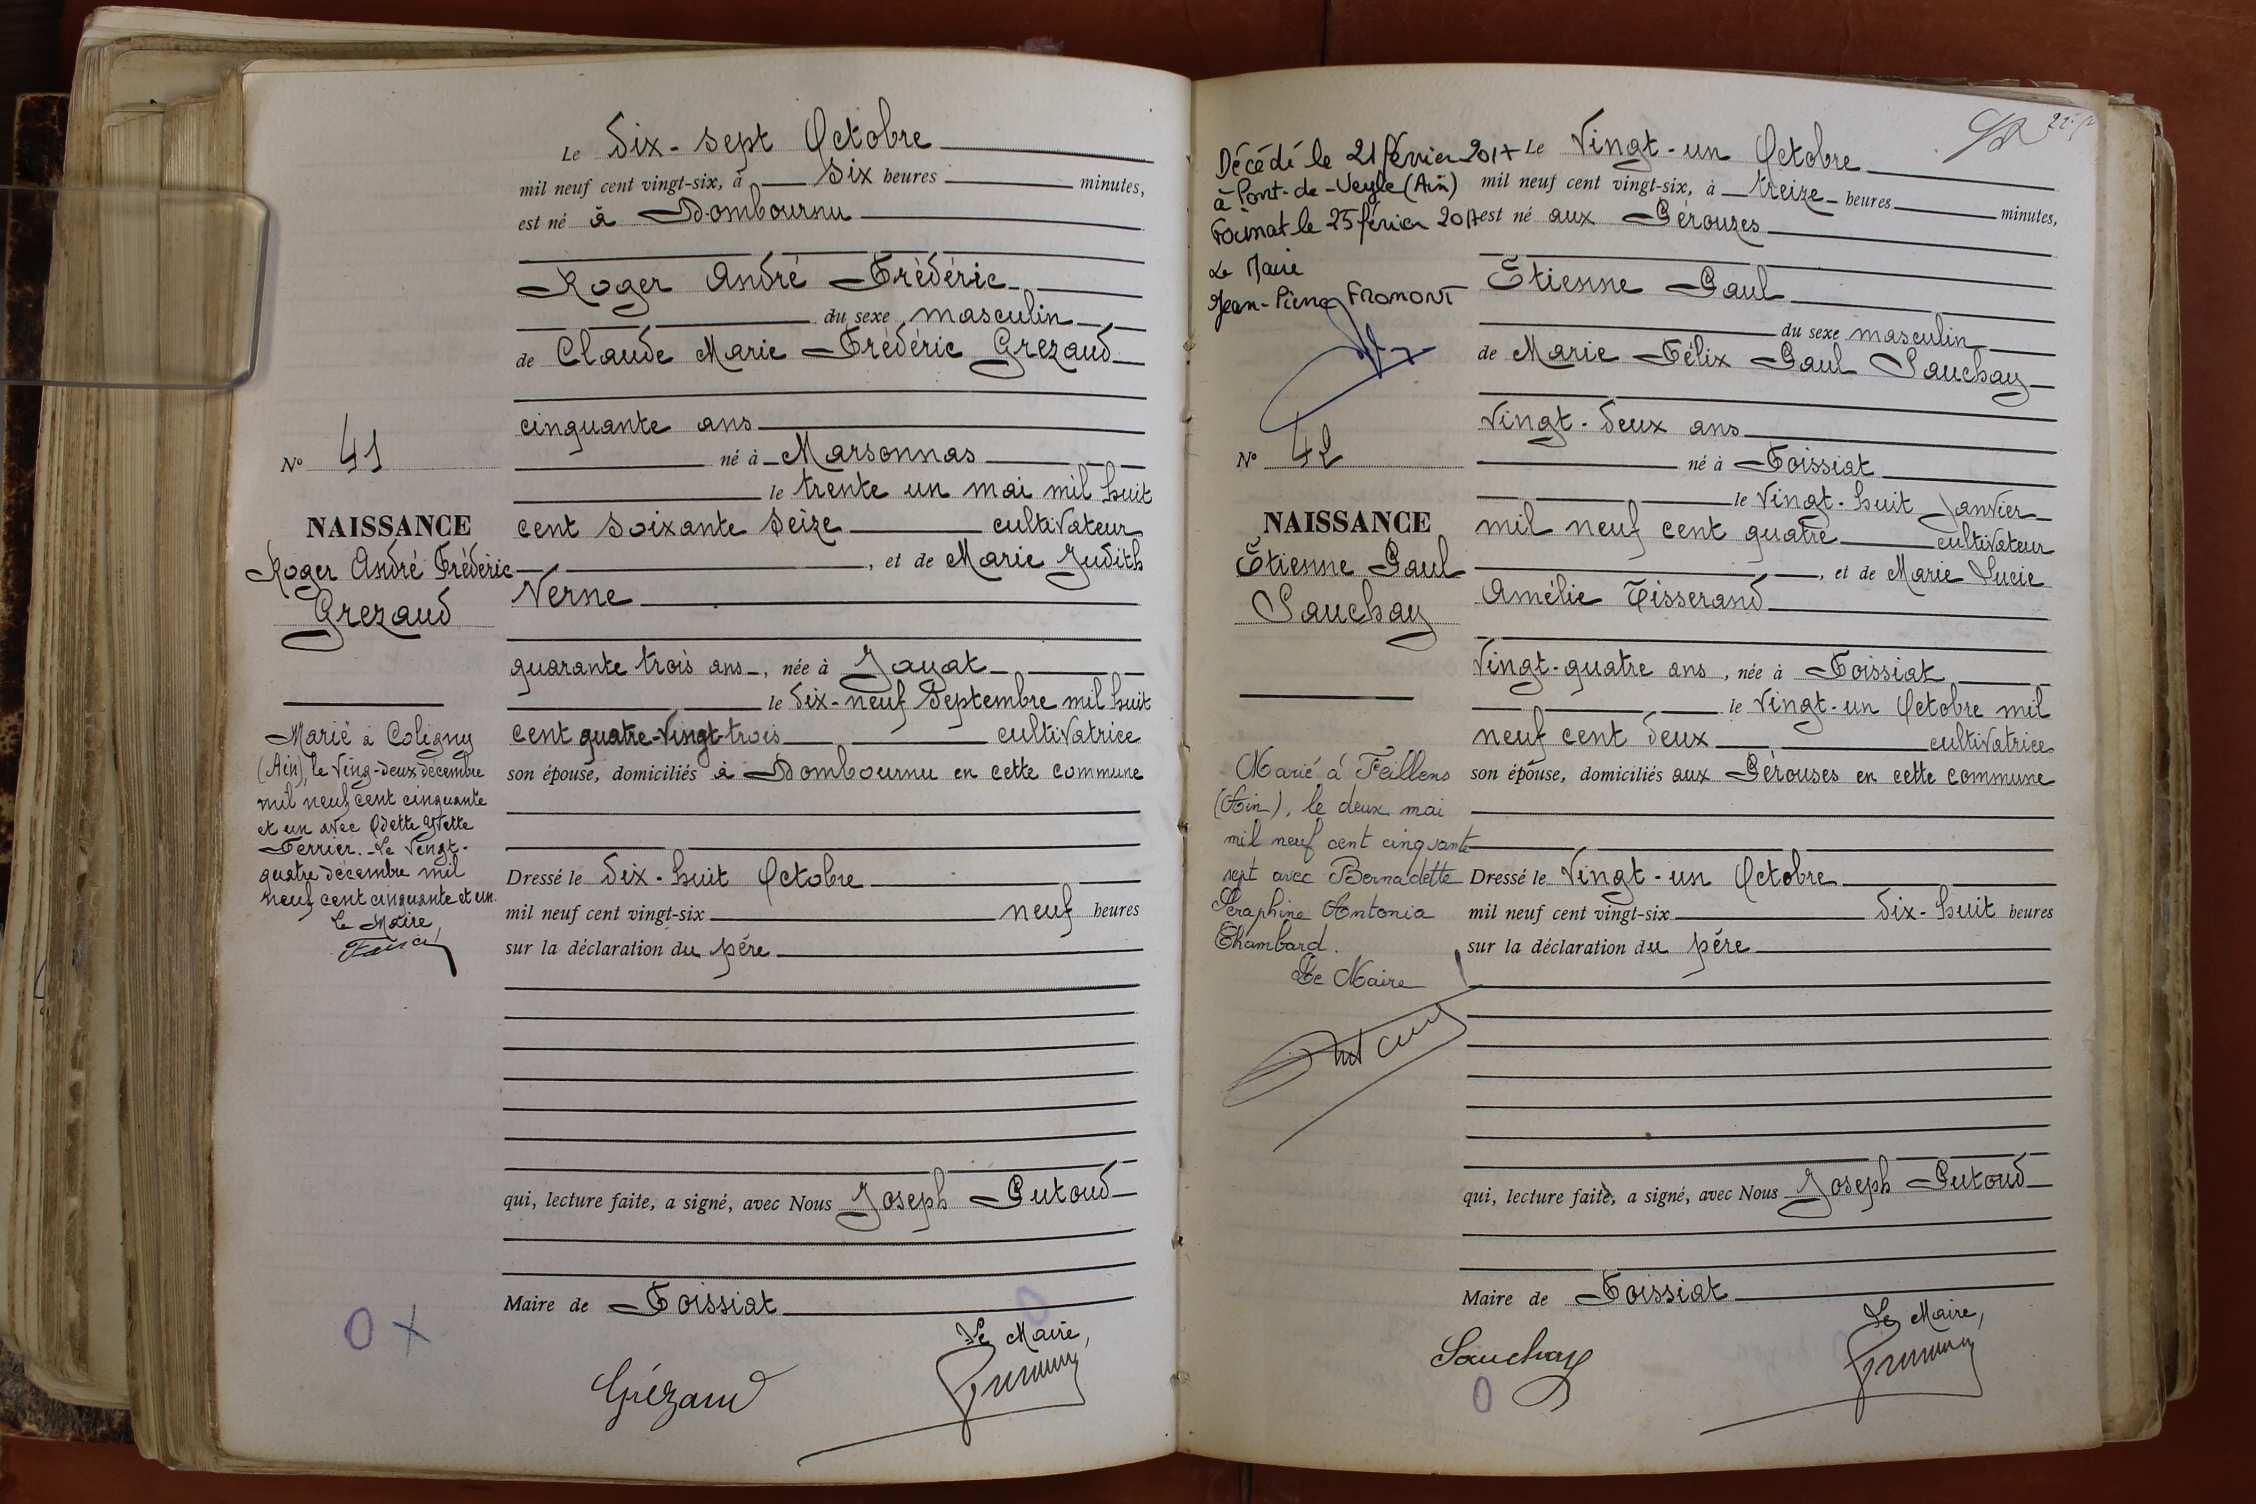 Le Dix-sept Octobre
mil neuf cent vingt-six, à Six heures minutes,
est né à Dombournu
Roger André Frédéric
du sexe masculin
de Claude Marie Frédéric Grezaud
cinquante ans
né à Marsonnas
le trente un mai mil huit
cent soixante seize cultivateur
, et de Marie Judith
Verne
quarante trois ans, née à Jayat
le dix-neuf Septembre mil huit
cent quatre-vingt-trois cultivatrice
son épouse, domiciliés à Dombournu en cette commune
Dressé le Dix-huit Octobre
mil neuf cent vingt-six neuf heures
sur la déclaration du père
qui, lecture faite, a signé, avec Nous Joseph Putoud
Maire de Foissiat
Le Maire,
Grézaud
No 41
NAISSANCE
Roger André Frédéric
Grezaud
Marié à Coligny
(Ain), le ving-deux décembre
mil neuf cent cinquante
et un avec Odette Yvette
Ferrier. Le Vingt-
quatre décembre mil
neuf cent cinquante et un.
Le Maire,
O X
Décédé le 21 février 2017
à Pont-de-Veyle (Ain)
Foissiat le 25 février 2017
Le Maire
Jean-Pierre FROMONT
No 42
NAISSANCE
Étienne Paul
Sauchay
Marié à Feillens
(Ain), le deux mai
mil neuf cent cinquante
sept avec Bernadette
Séraphine Antonia
Chambard.
Le Maire
Le Vingt-un Octobre
mil neuf cent vingt-six, à treize heures minutes,
est né aux Pérouzes
Étienne Paul
du sexe masculin
de Marie Félix Paul Sauchay
Vingt-deux ans
né à Foissiat
le Vingt-huit Janvier
mil neuf cent quatre cultivateur
, et de Marie Lucie
Amélie Tisserand
Vingt-quatre ans, née à Foissiat
le Vingt-un Octobre mil
neuf cent deux cultivatrice
son épouse, domiciliés aux Pérouses en cette commune
Dressé le Vingt-un Octobre
mil neuf cent vingt-six Dix-huit heures
sur la déclaration du père
qui, lecture faite, a signé, avec Nous Joseph Putoud
Maire de Foissiat
Le Maire,
Sauchay
O